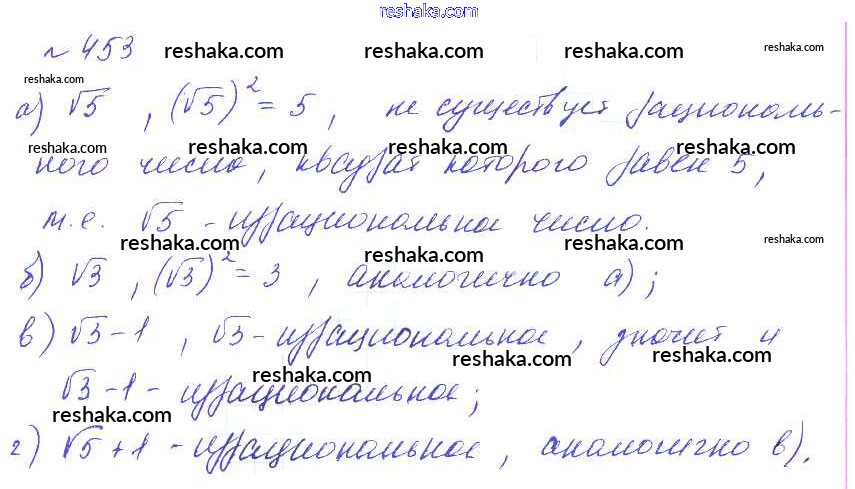 www.reshaka.com
№ 453 reshaka.com reshaka.com reshaka.com reshaka.com
reshaka.com
а) √5 , (√5)² = 5 , не существует рациональ-
reshaka.com reshaka.com reshaka.com reshaka.com
ного число, квадрат которого равен 5,
т.е. √5 - иррациональное число.
reshaka.com reshaka.com reshaka.com reshaka.com
б) √3 , (√3)² = 3 , аналогично а) ;
в) √3 - 1 , √3 - иррациональное , значит и
reshaka.com reshaka.com reshaka.com
√3 - 1 - иррациональное ;
reshaka.com
г) √5 + 1 - иррациональное , аналогично в).